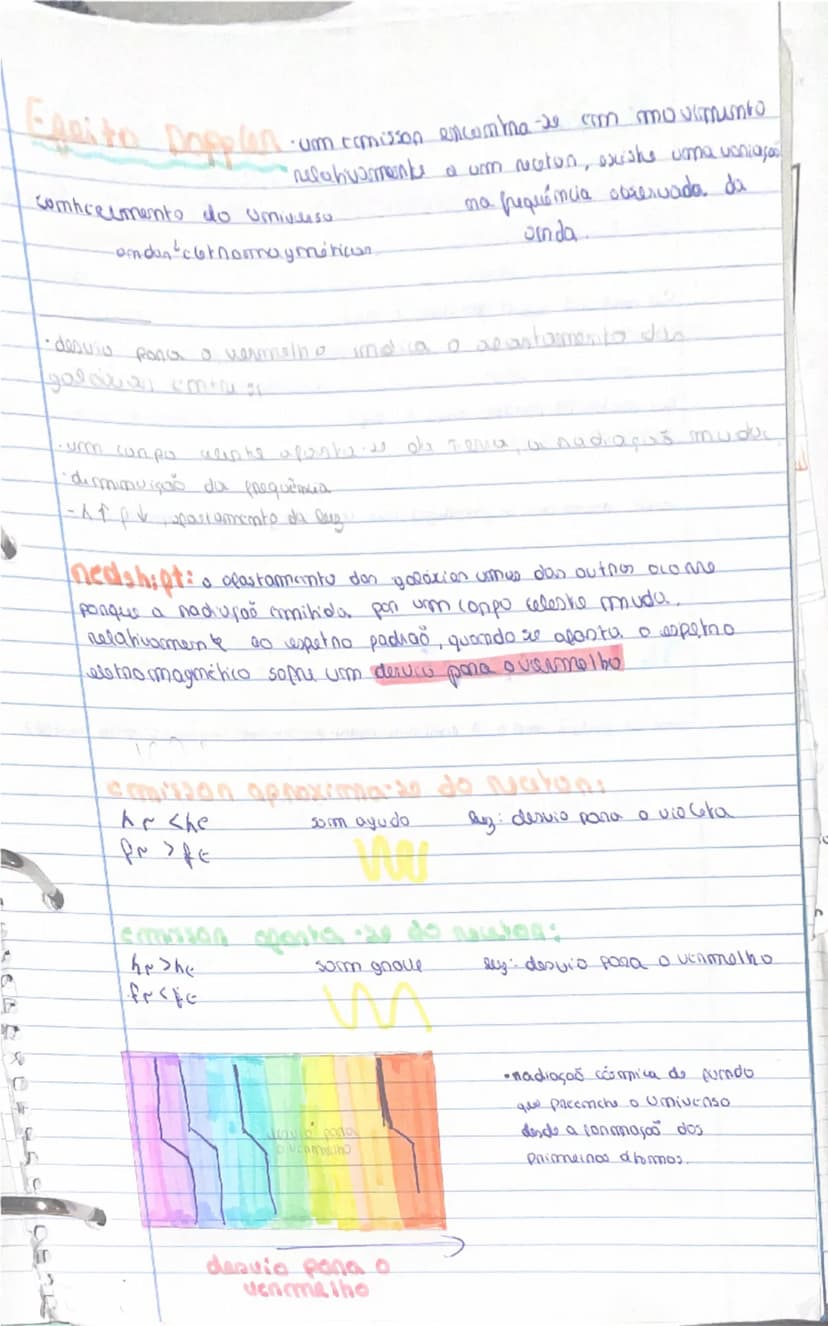 Efeito Doppler · um emissor encontra-se em movimento
relativamente a um recetor, existe uma variação
conhecimento do universo
na frequência observada da
onda.
ondas eletromagnéticas
· desvio para o vermelho indica o afastamento das
galáxias entre si
· um corpo celeste afasta-se da Terra, a radiação muda
· diminuição da frequência
- λ↑ f↓, afastamento da luz
redshift: o afastamento das galáxias umas das outras ocorre
porque a radiação emitida por um corpo celeste muda.
relativamente ao espetro padrão, quando se afasta o espetro
eletromagnético sofre um desvio para o vermelho
emissor aproxima-se do recetor:
λr < λe som agudo luz: desvio para o violeta
fr > fe
emissor afasta-se do recetor:
λr > λe som grave luz: desvio para o vermelho
fr < fe
desvio para
o vermelho
• radiação cósmica de fundo
que preenche o universo
desde a formação dos
primeiros átomos.
desvio para o
vermelho